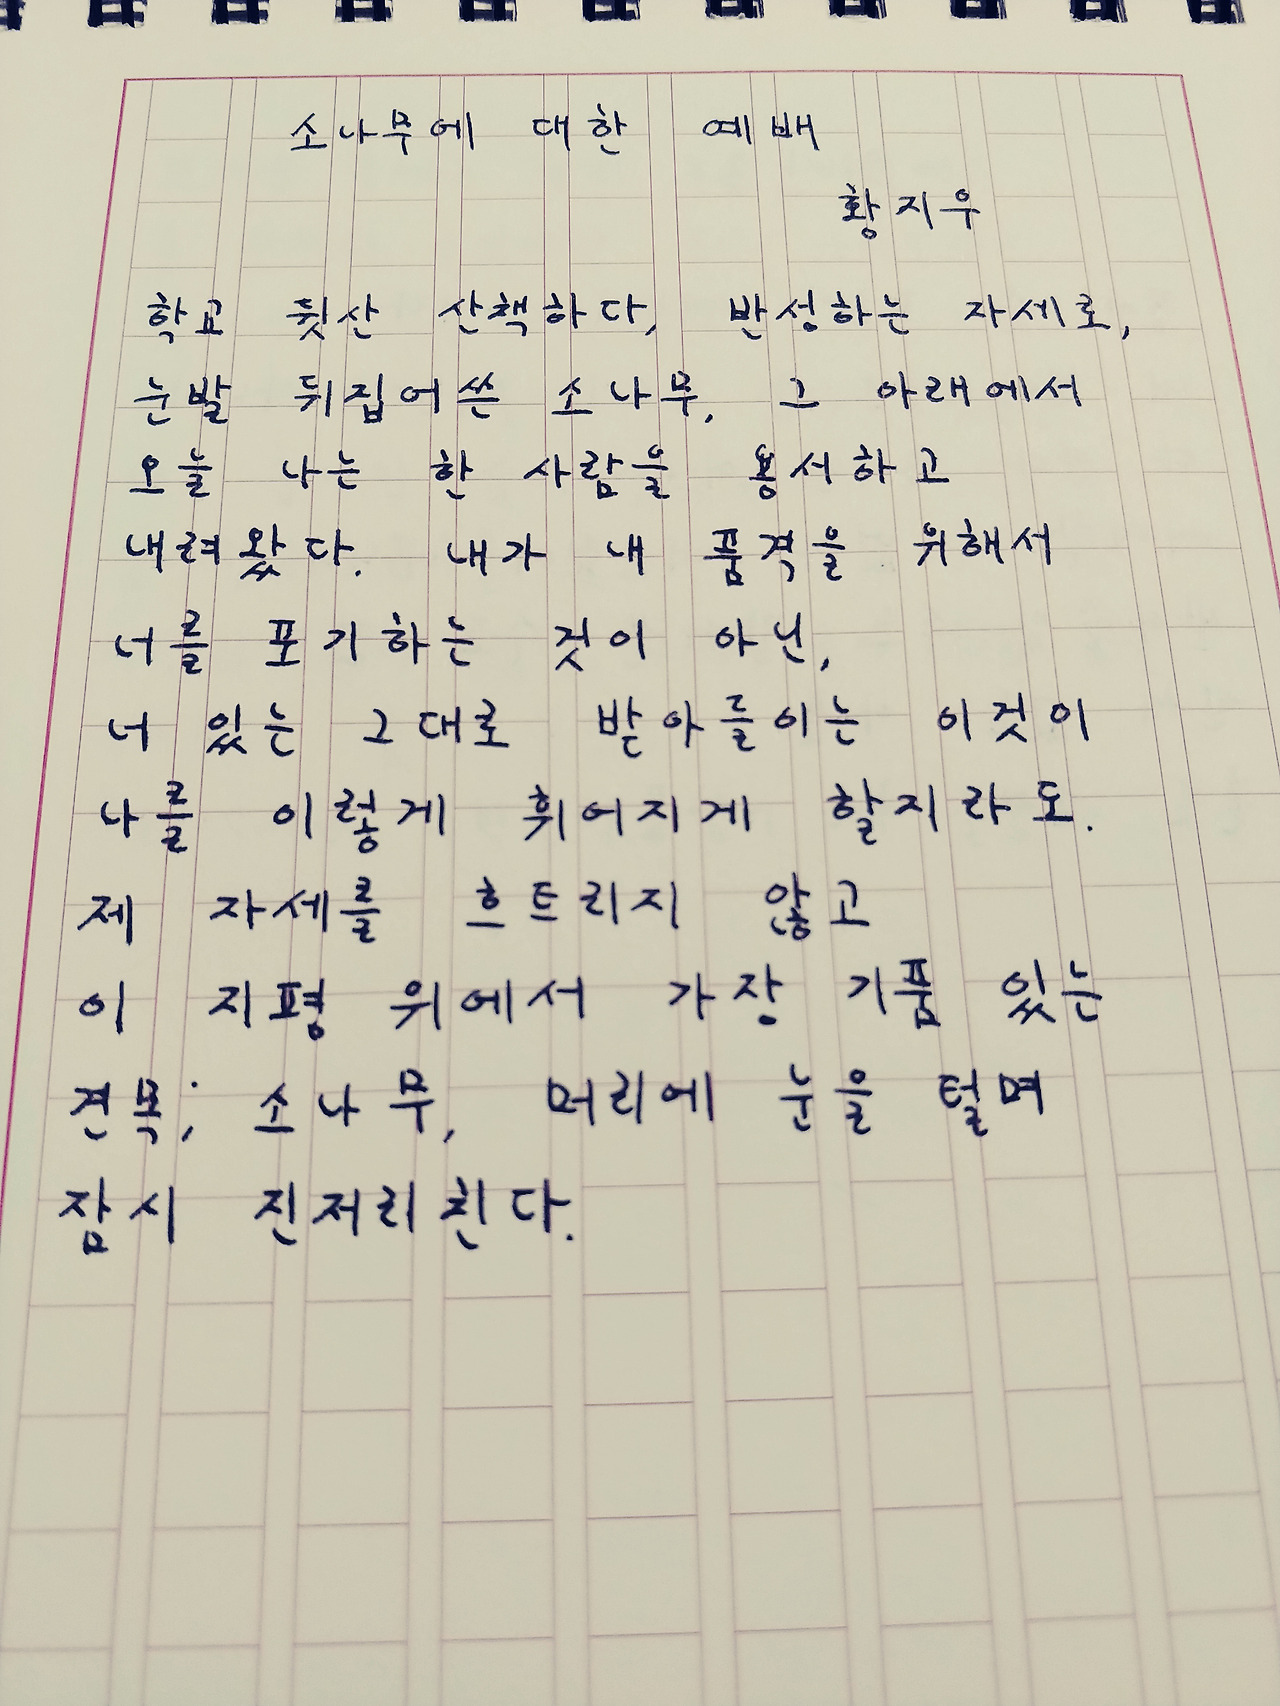 소나무에 대한 예배
황지우
학교 뒷산 산책하다, 반성하는 자세로,
눈발 뒤집어쓴 소나무, 그 아래에서
오늘 나는 한 사람을 용서하고
내려왔다. 내가 내 품격을 위해서
너를 포기하는 것이 아닌,
너 있는 그대로 받아들이는 이것이
나를 이렇게 휘어지게 할지라도.
제 자세를 흐트리지 않고
이 지평 위에서 가장 기품 있는
견목; 소나무, 머리에 눈을 털며
잠시 진저리친다.